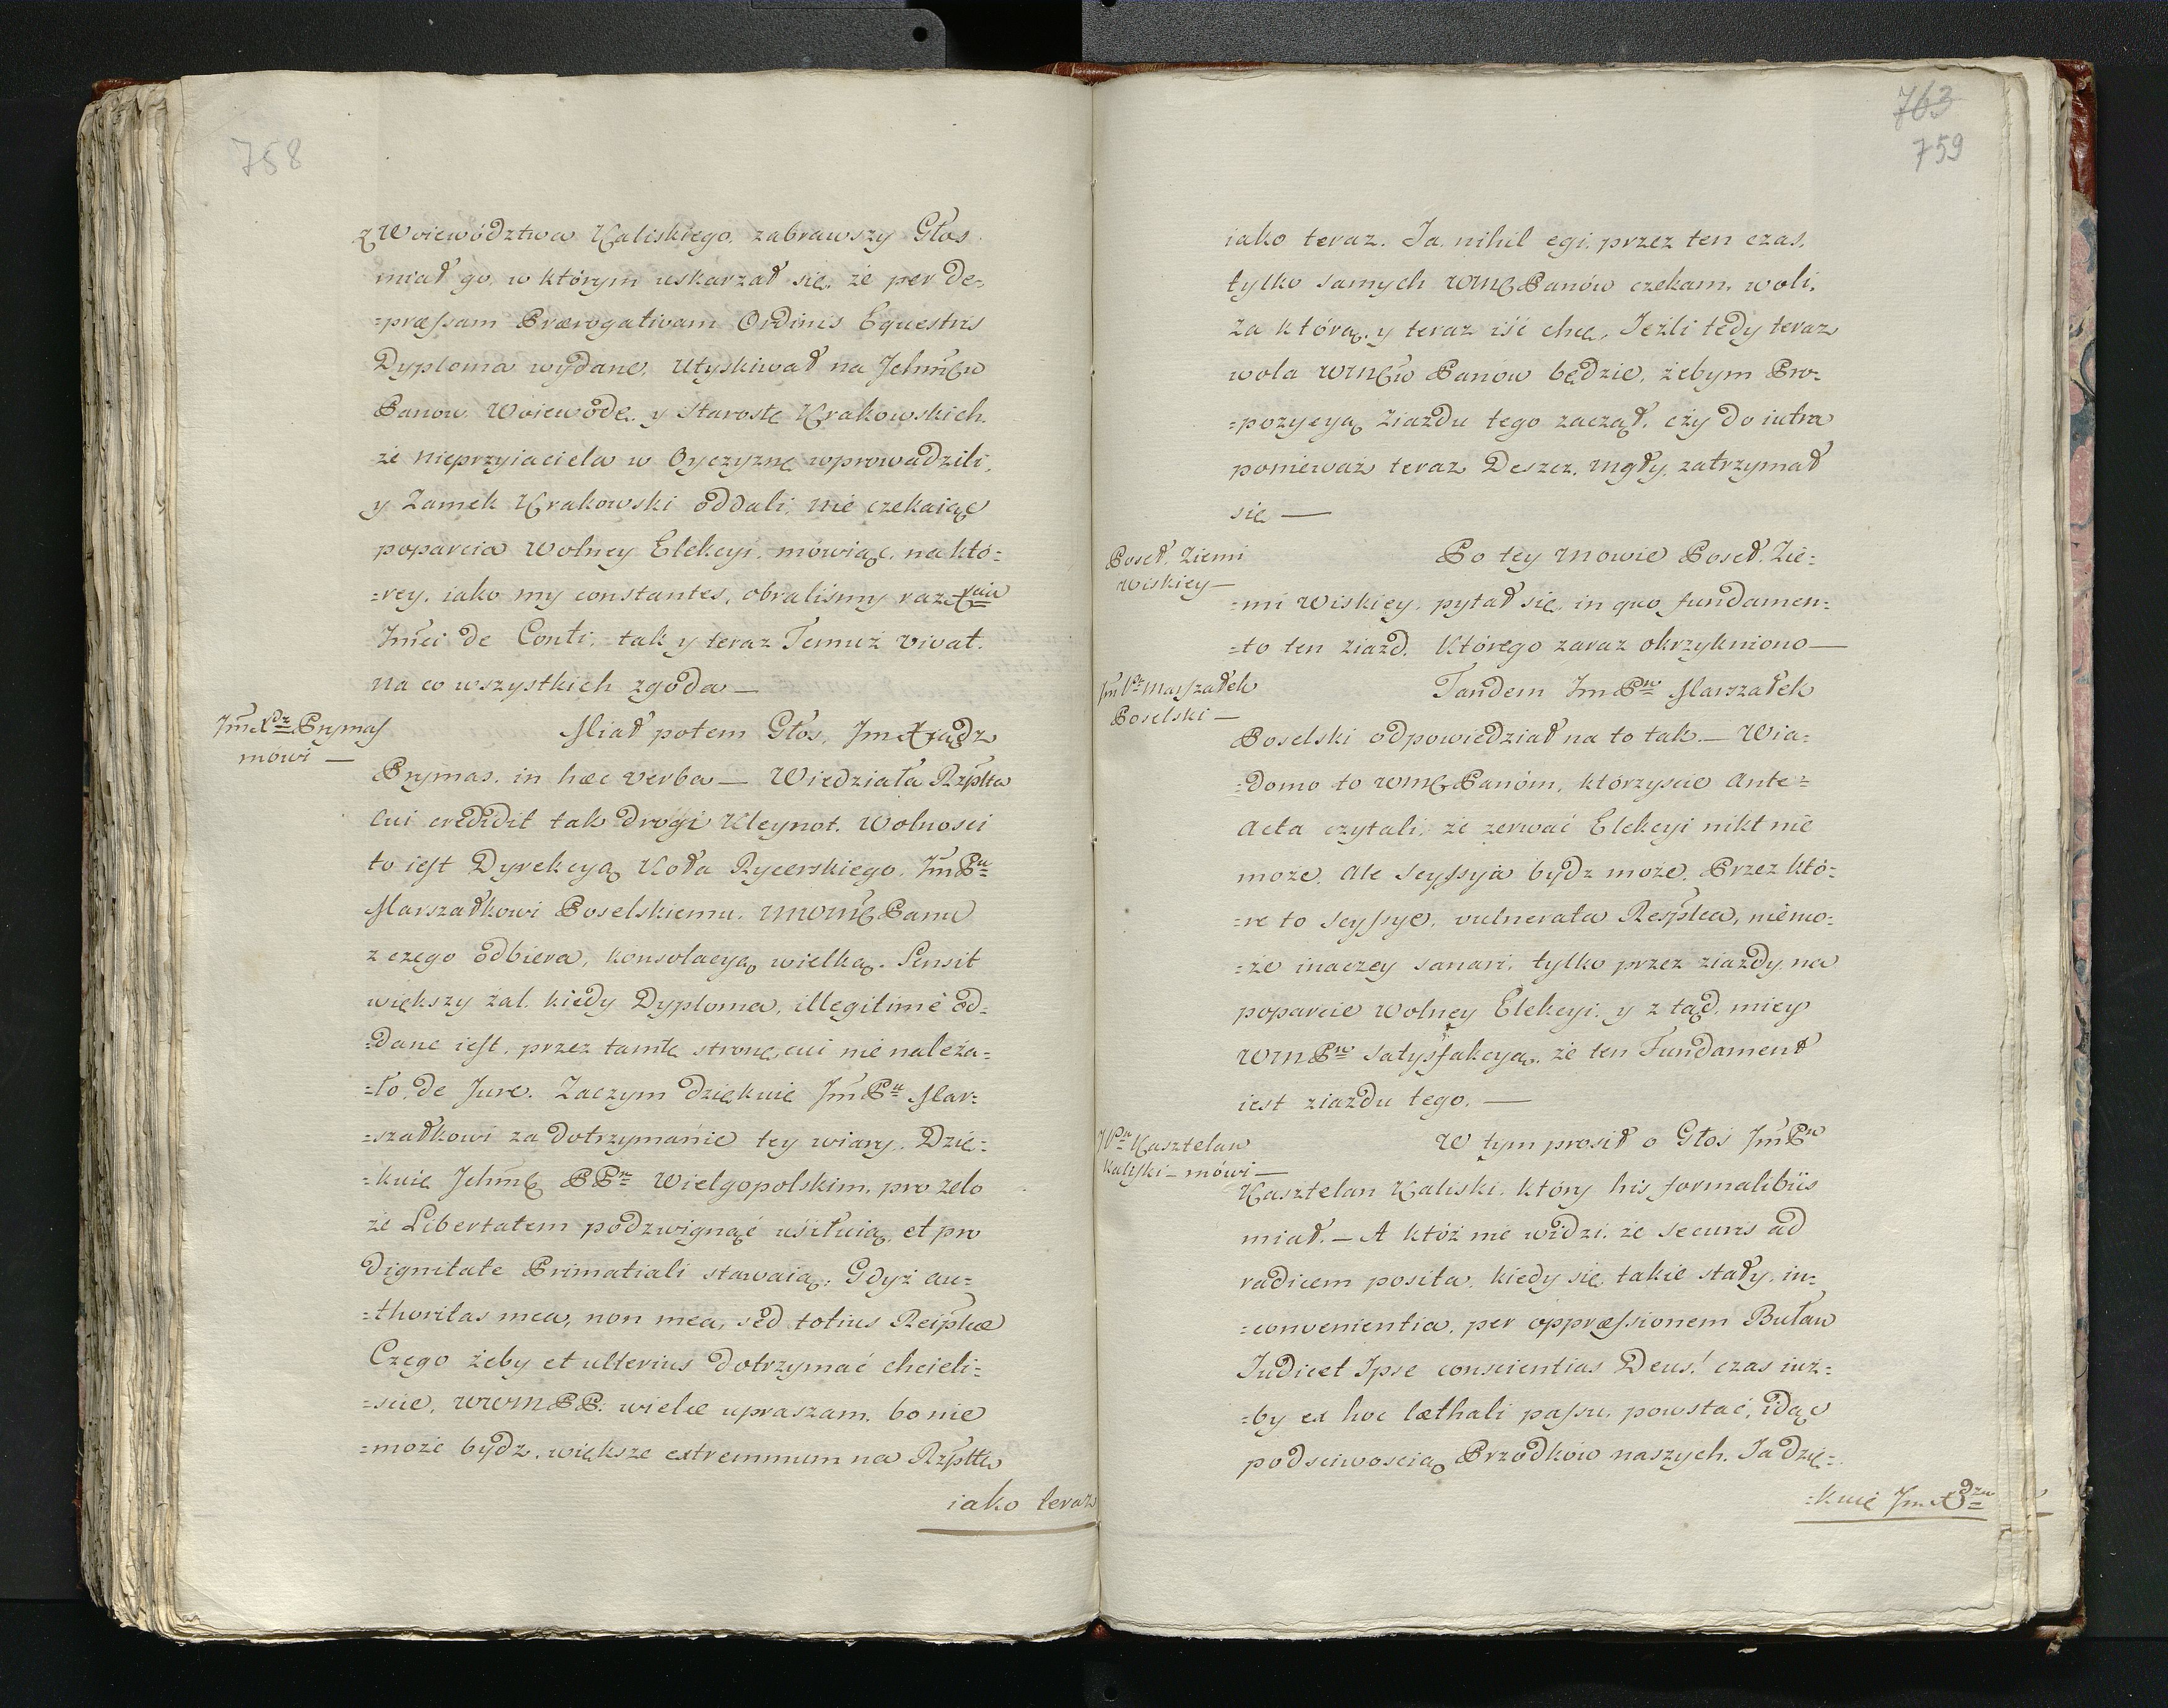 758
z Woiewództwa Kaliskiego, zabrawszy Głos
miał go, w którym uskarzał się, że per de-
=præssam Prærogativam Ordinis Equestris
Dyploma wydane, utyskiwał na Jchmćw
Panow Woiewodę, y Starostę Krakowskich,
że nieprzyiaciela w Oyczyznę wprowadzili,
y Zamek Krakowski oddali, nie czekaiąc
poparcia Wolney Elekcyi, mówiąc, na któ=
=rey, iako my constantes, obraliśmy raz Xcia
Jmci de Conti, tak y teraz Temuż vivat.
na co wszystkich zgoda —
Jm Xdz Prymas
mówi —
Miał potem Głos, Jm Xiądz
Prymas, in hæc verba — Wiedziała Rzplta
Cui credidit tak drogi Kleynot. Wolnosci
to iest Dyrekcyą Koła Rycerskiego, Jm Pu
Marszałkowi Poselskiemu, MMWMć Panu
z czego odbiera, konsolacyą wielką. Sensit
większy żal, kiedy Dyploma, illegitimè od=
=dane iest, przez tamtę stronę, cui nie należa=
=ło, de Jure. Zaczym dziękuię Jm Pu Mar=
=szałkowi za dotrzymanie tey wiary. Dzię=
=kuię Jchmć PPn Wielgopolskim, pro zelo
że Libertatem podzwignąć usiłuią, et pro
Dignitate Primatiali stawaią; Gdyż au=
=thoritas mea, non mea, sed totius Reiplcæ
Czego żeby et ulterius dotrzymać chcieli=
=scie, WWMPP. wielce upraszam, bo nie
=może bydz, większe extremmum na Rzpltę
iako teraz
763
759
iako teraz. Ja nihil egi, przez ten czas,
tylko samych WMć Panów czekam, woli,
za którą, y teraz iść chcę, Jeżli tedy teraz
wola WMćw Panow będzie, żebym Pro=
=pozycyą Ziazdu tego zaczął, czy do iutra
ponieważ teraz Deszcz, mgły, zatrzymał
się —
Poseł Ziemi
Wiskiey —
Po tey mowie Poseł Zie=
=mi Wiskiey, pytał się, in quo fundamen=
=to ten ziazd. Którego zaraz okrzykniono —
Jm Pn Marszałek
Poselski —
Tandem Jm Pn Marszałek
Poselski odpowiedział na to tak. — Wia=
=domo to WMć Panóm, którzyscie Ante=
Acta czytali, że zerwać Elekcyi nikt nie
może, ale Scyssyia bydz może. Przez któ=
=re to Scyssye, vulnerata Resplca, niemo=
=że inaczey sanari, tylko przez ziazdy, na
poparcie Wolney Elekcyi, y z tąd, miey
WMPn Satysfakcyą, że ten Fundament
iest ziazdu tego. —
JPn Kasztelan
Kaliski — mówi —
W tym prosił o Głos Jm Pn
Kasztelan Kaliski, który his formalibus
miał. — A któż nie widzi, że securis ad
radicem posita, kiedy się, takie stały, in=
=convenientia, per oppræssionem Buław
Judicet Ipse conscientias Deus! czas iuż=
=by ex hoc læthali passu, powstać, idąc
podsciwoscią Przodków naszych. Ja dzię=
=kuię Jm Xdzu